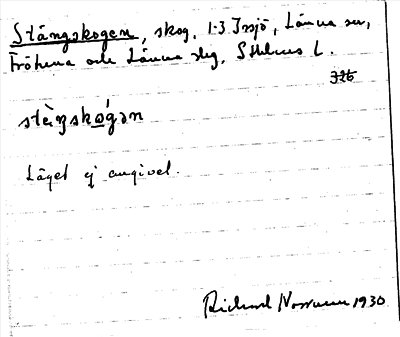 Stängskogen, skog, 1-3 Issjö, Länna sn,
Frötuna och Länna slg, Sthlms L.
326
stèŋskώ̨gan
Läget ej angivet.
Richard Norrman 1930